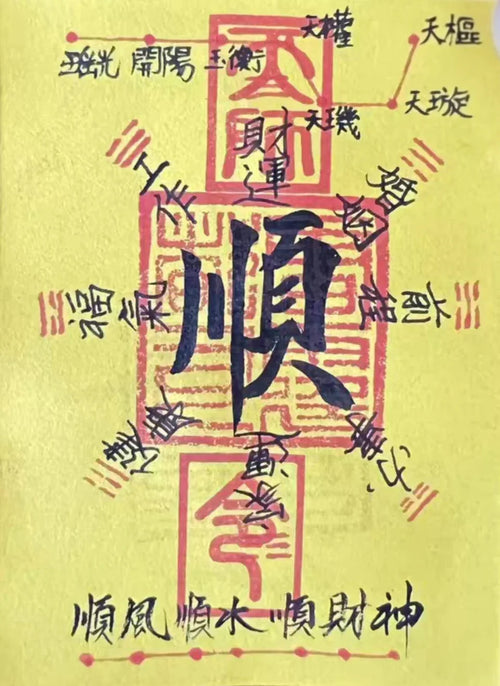 天樞
天權
瑤光 開陽 玉衡
天璇
天璣
財運
工作
婚姻
福氣
順
前程
健康
家運
順風順水順財神